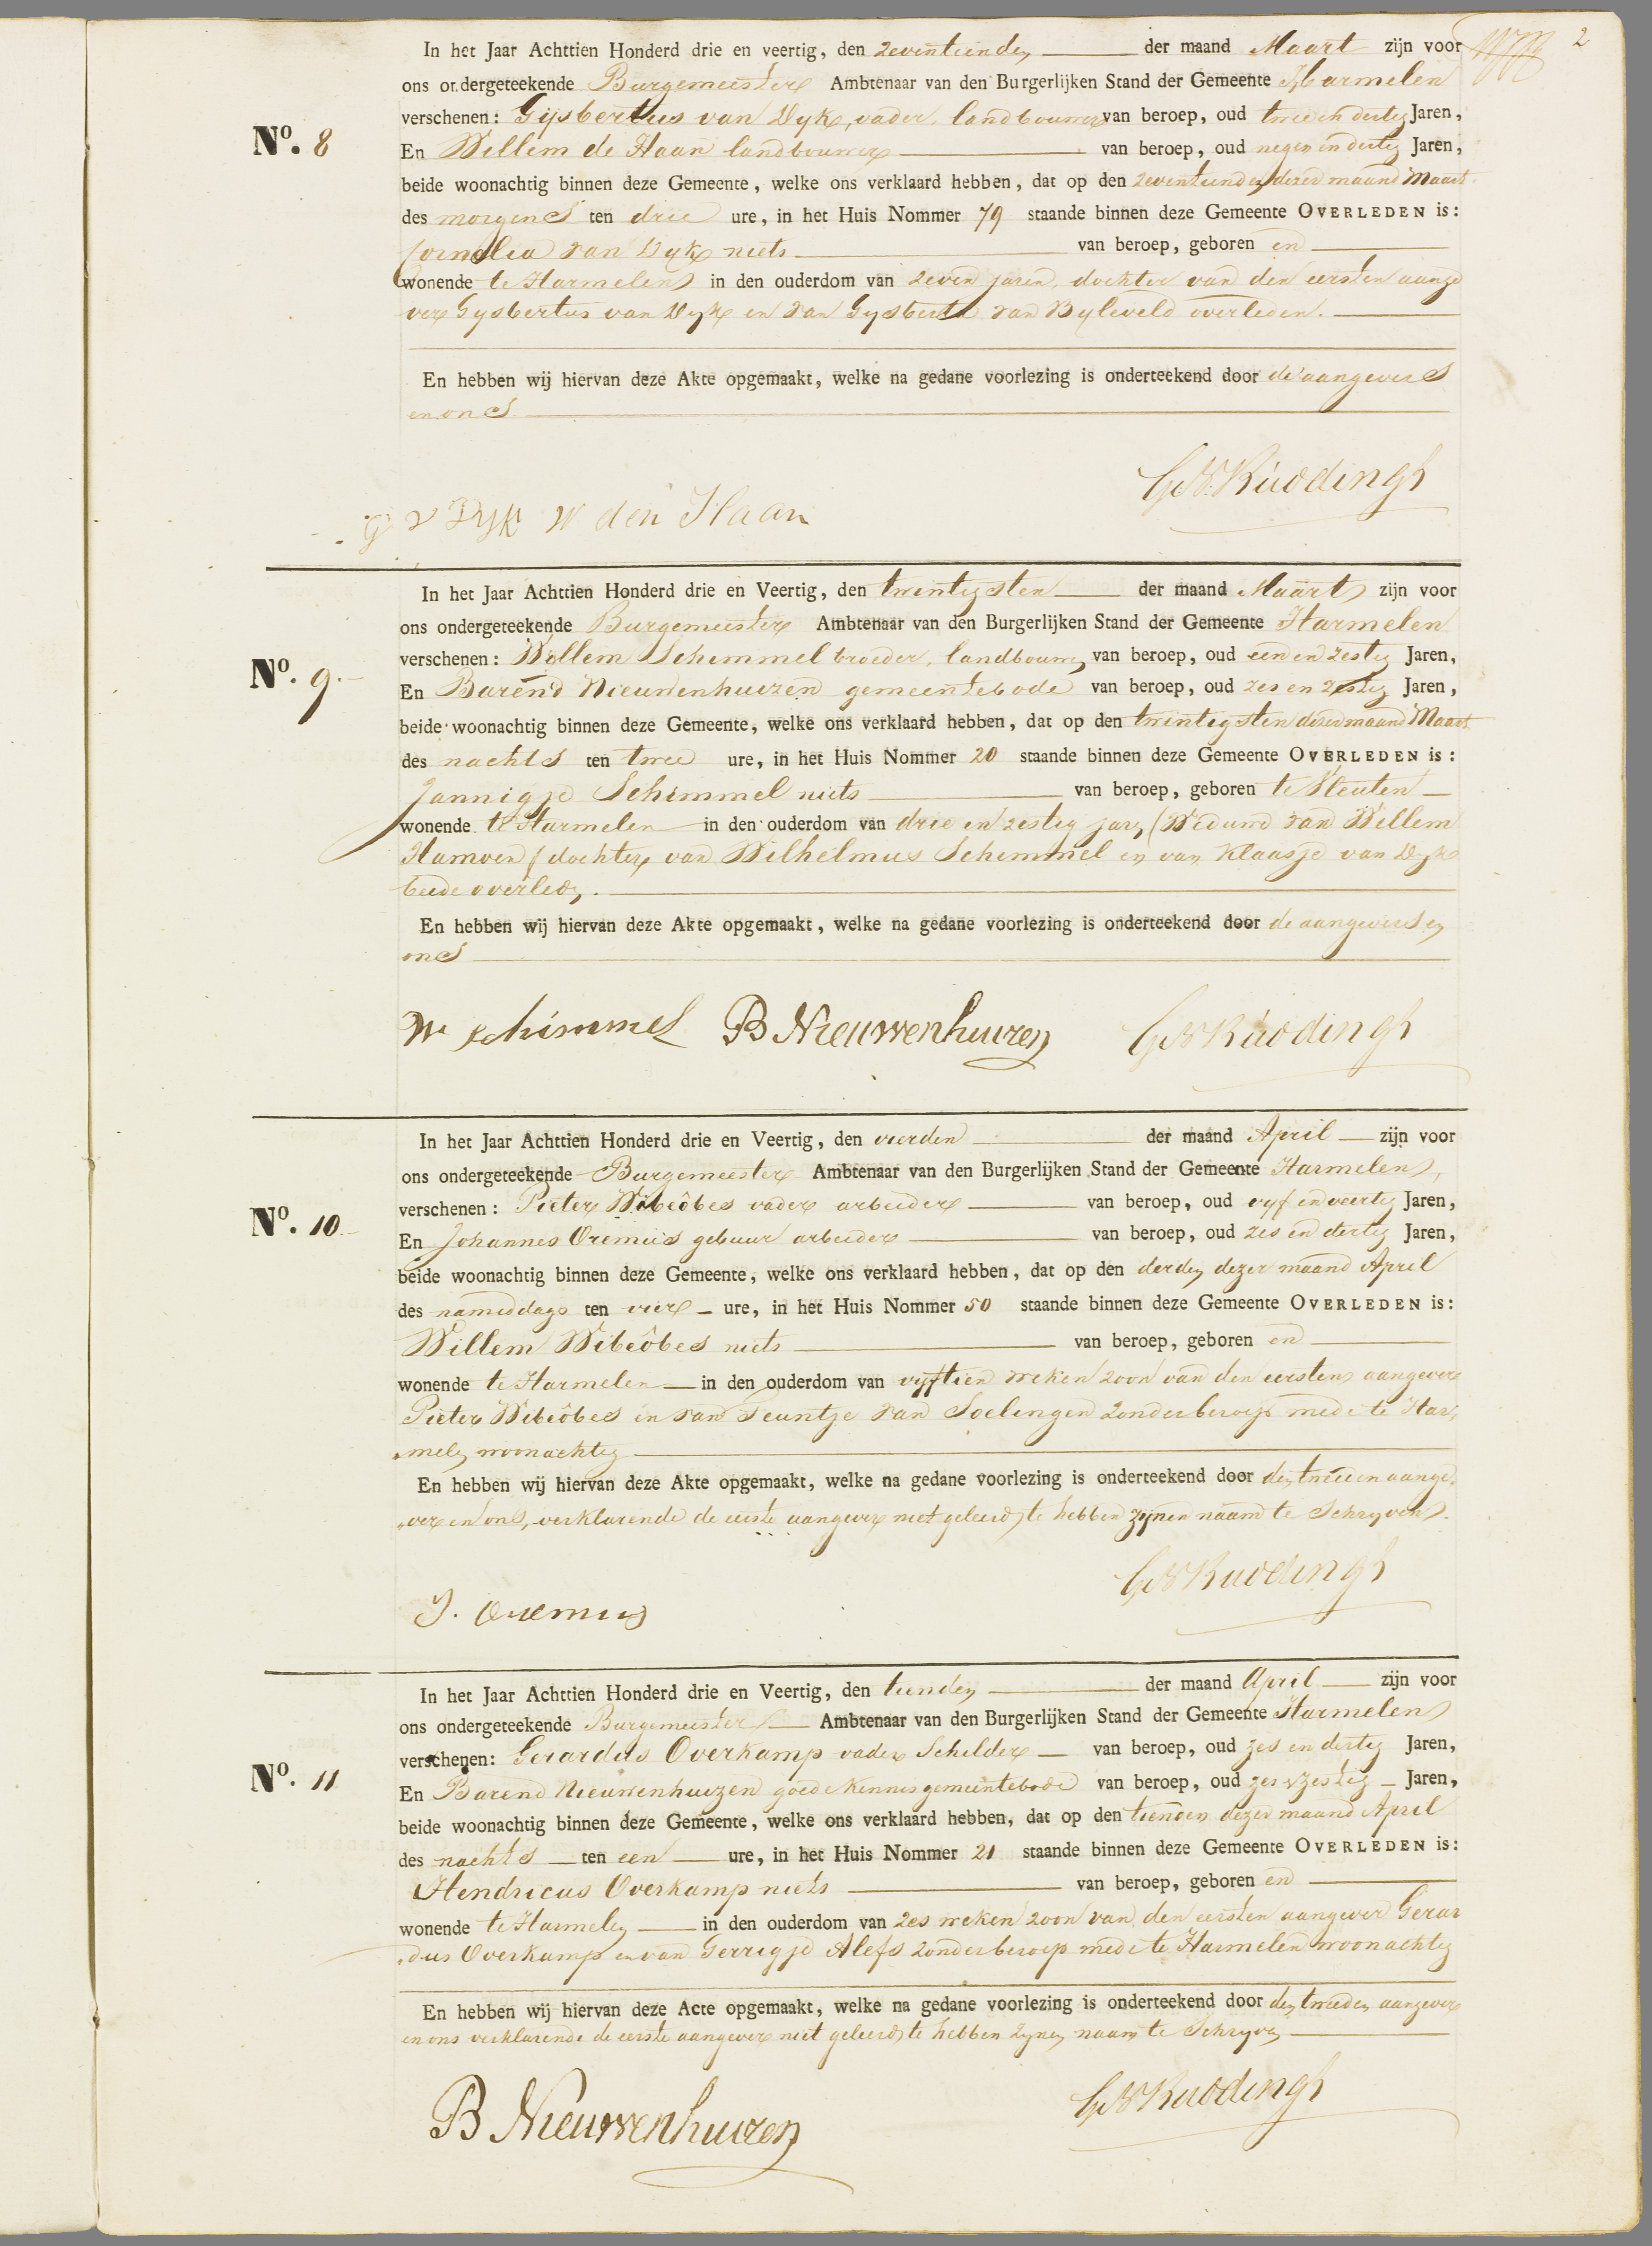 2
In het Jaar Achttien Honderd drie en veertig, den zeventienden der maand Maart zijn voor
ons ondergeteekende Burgemeester Ambtenaar van den Burgerlijken Stand der Gemeente Harmelen
verschenen: Gijsbertus van Dyk, vader, landbouwer van beroep, oud twee en dertig Jaren,
No. 8
En Willem de Haan landbouwer van beroep, oud negen en dertig Jaren,
beide woonachtig binnen deze Gemeente, welke ons verklaard hebben, dat op den zeventienden dezer maand Maart
des morgens ten drie ure, in het Huis Nommer 79 staande binnen deze Gemeente OVERLEDEN is:
Cornelia van Dyk niets van beroep, geboren en
wonende te Harmelen in den ouderdom van zeven jaren, dochter van den eersten aange
ver Gysbertus van Dyk en van Gysberta van Byleveld overleden.
En hebben wij hiervan deze Akte opgemaakt, welke na gedane voorlezing is onderteekend door de aangevers
en ons
G v Dyk W den Haan
In het Jaar Achttien Honderd drie en Veertig, den twintigsten der maand Maart zijn voor
ons ondergeteekende Burgemeester Ambtenaar van den Burgerlijken Stand der Gemeente Harmelen
verschenen: Willem Schimmel broeder, landbouwer van beroep, oud een en zestig Jaren,
No. 9.
En Barend Nieuwenhuizen gemeentebode van beroep, oud zes en zestig Jaren,
beide woonachtig binnen deze Gemeente, welke ons verklaard hebben, dat op den twintigsten dezer maand Maart
des nachts ten twee ure, in het Huis Nommer 20 staande binnen deze Gemeente OVERLEDEN is:
Jannigje Schimmel niets van beroep, geboren te Vleuten
wonende te Harmelen in den ouderdom van drie en zestig jaren (Weduwe van Willem
Hamoen) dochter van Wilhelmus Schimmel en van Klaasje van Dyk
beide overleden.
En hebben wij hiervan deze Akte opgemaakt, welke na gedane voorlezing is onderteekend door de aangevers en
ons
W schimmel B Nieuwenhuizen
In het Jaar Achttien Honderd drie en Veertig, den vierden der maand April zijn voor
ons ondergeteekende Burgemeester Ambtenaar van den Burgerlijken Stand der Gemeente Harmelen,
verschenen: Pieter Wibeôbes vader arbeider van beroep, oud vyf en veertig Jaren,
No. 10
En Johannes Oremus gebuur arbeider van beroep, oud zes en dertig Jaren,
beide woonachtig binnen deze Gemeente, welke ons verklaard hebben, dat op den derden dezer maand April
des namiddags ten vier ure, in het Huis Nommer 50 staande binnen deze Gemeente OVERLEDEN is:
Willem Wibeôbes niets van beroep, geboren en
wonende te Harmelen in den ouderdom van vyftien weken zoon van den eersten aangever
Pieter Wibeôbes en van Teuntje van Soelingen zonder beroep mede te Har,
melen woonachtig
En hebben wij hiervan deze Akte opgemaakt, welke na gedane voorlezing is onderteekend door den tweeden aange,
ver en ons, verklarende de eerste aangever niet geleerd te hebben zynen naam te Schryven.
J. Oremus
In het Jaar Achttien Honderd drie en Veertig, den tienden der maand April zijn voor
ons ondergeteekende Burgemeester Ambtenaar van den Burgerlijken Stand der Gemeente Harmelen
verschenen: Gerardus Overkamp vader Schilder van beroep, oud zes en dertig Jaren,
No. 11
En Barend Nieuwenhuizen goede kennis gemeentebode van beroep, oud zes & zestig Jaren,
beide woonachtig binnen deze Gemeente, welke ons verklaard hebben, dat op den tienden dezer maand April
des nachts ten een ure, in het Huis Nommer 21 staande binnen deze Gemeente OVERLEDEN is:
Hendricus Overkamp niets van beroep, geboren en
wonende te Harmelen in den ouderdom van zes weken zoon van den eersten aangever Gerar
dus Overkamp en van Gerrigje Alefs zonder beroep mede te Harmelen woonachtig
En hebben wij hiervan deze Acte opgemaakt, welke na gedane voorlezing is onderteekend door den tweeden aangever
en ons verklarende de eerste aangever niet geleerd te hebben zynen naam te Schryven
B Nieuwenhuizen